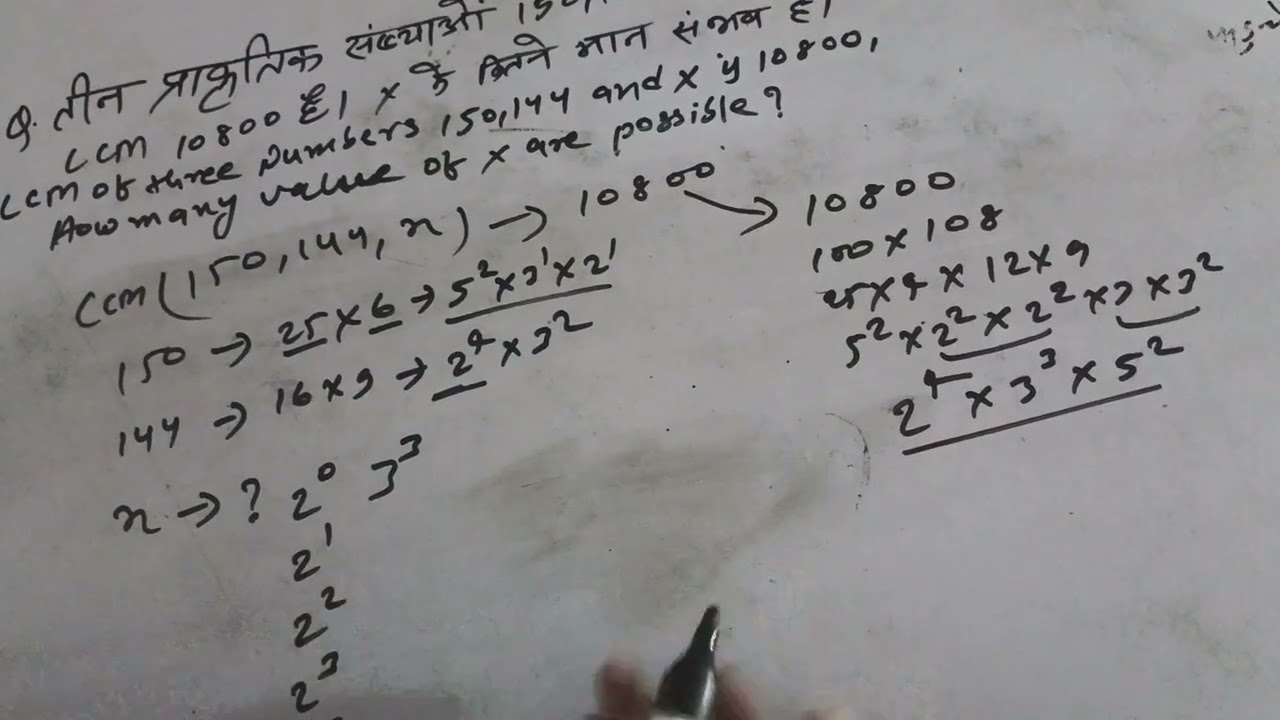 Q. तीन प्राकृतिक संख्याओं
LCM 10800 है। x के कितने मान संभव है।
LCM of three numbers 150, 144 and x is 10800,
How many value of x are possible?
LCM(150, 144, x) → 10800 → 10800
100 × 108
150 → 25 × 6 → 5² × 3¹ × 2¹
25 × 4 × 12 × 9
144 → 16 × 9 → 2⁴ × 3²
5² × 2² × 2² × 3 × 3²
2⁴ × 3³ × 5²
x → ? 2⁰ 3³
2¹
2²
2³